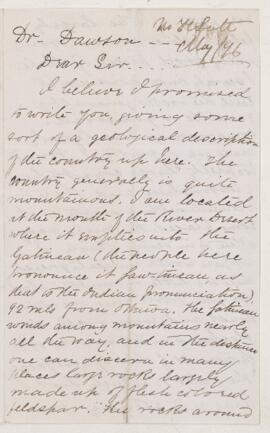 Dr. Dawson --
May /76
Dear Sir. . . .
I believe I promised
to write you, giving some
sort of a geological description
of the country up here. The
country generally is quite
mountainous. I am located
at the mouth of the River Desert
where it empties into the
Gatineau (the people here
pronounce it
as
that is the Indian pronunciation).
92 mls from Ottawa. The Gatineau
winds among mountains nearly
all the way, and in the distance
one can discern in many
places large rocks largely
made up of flesh colored
feldspar. The rocks around